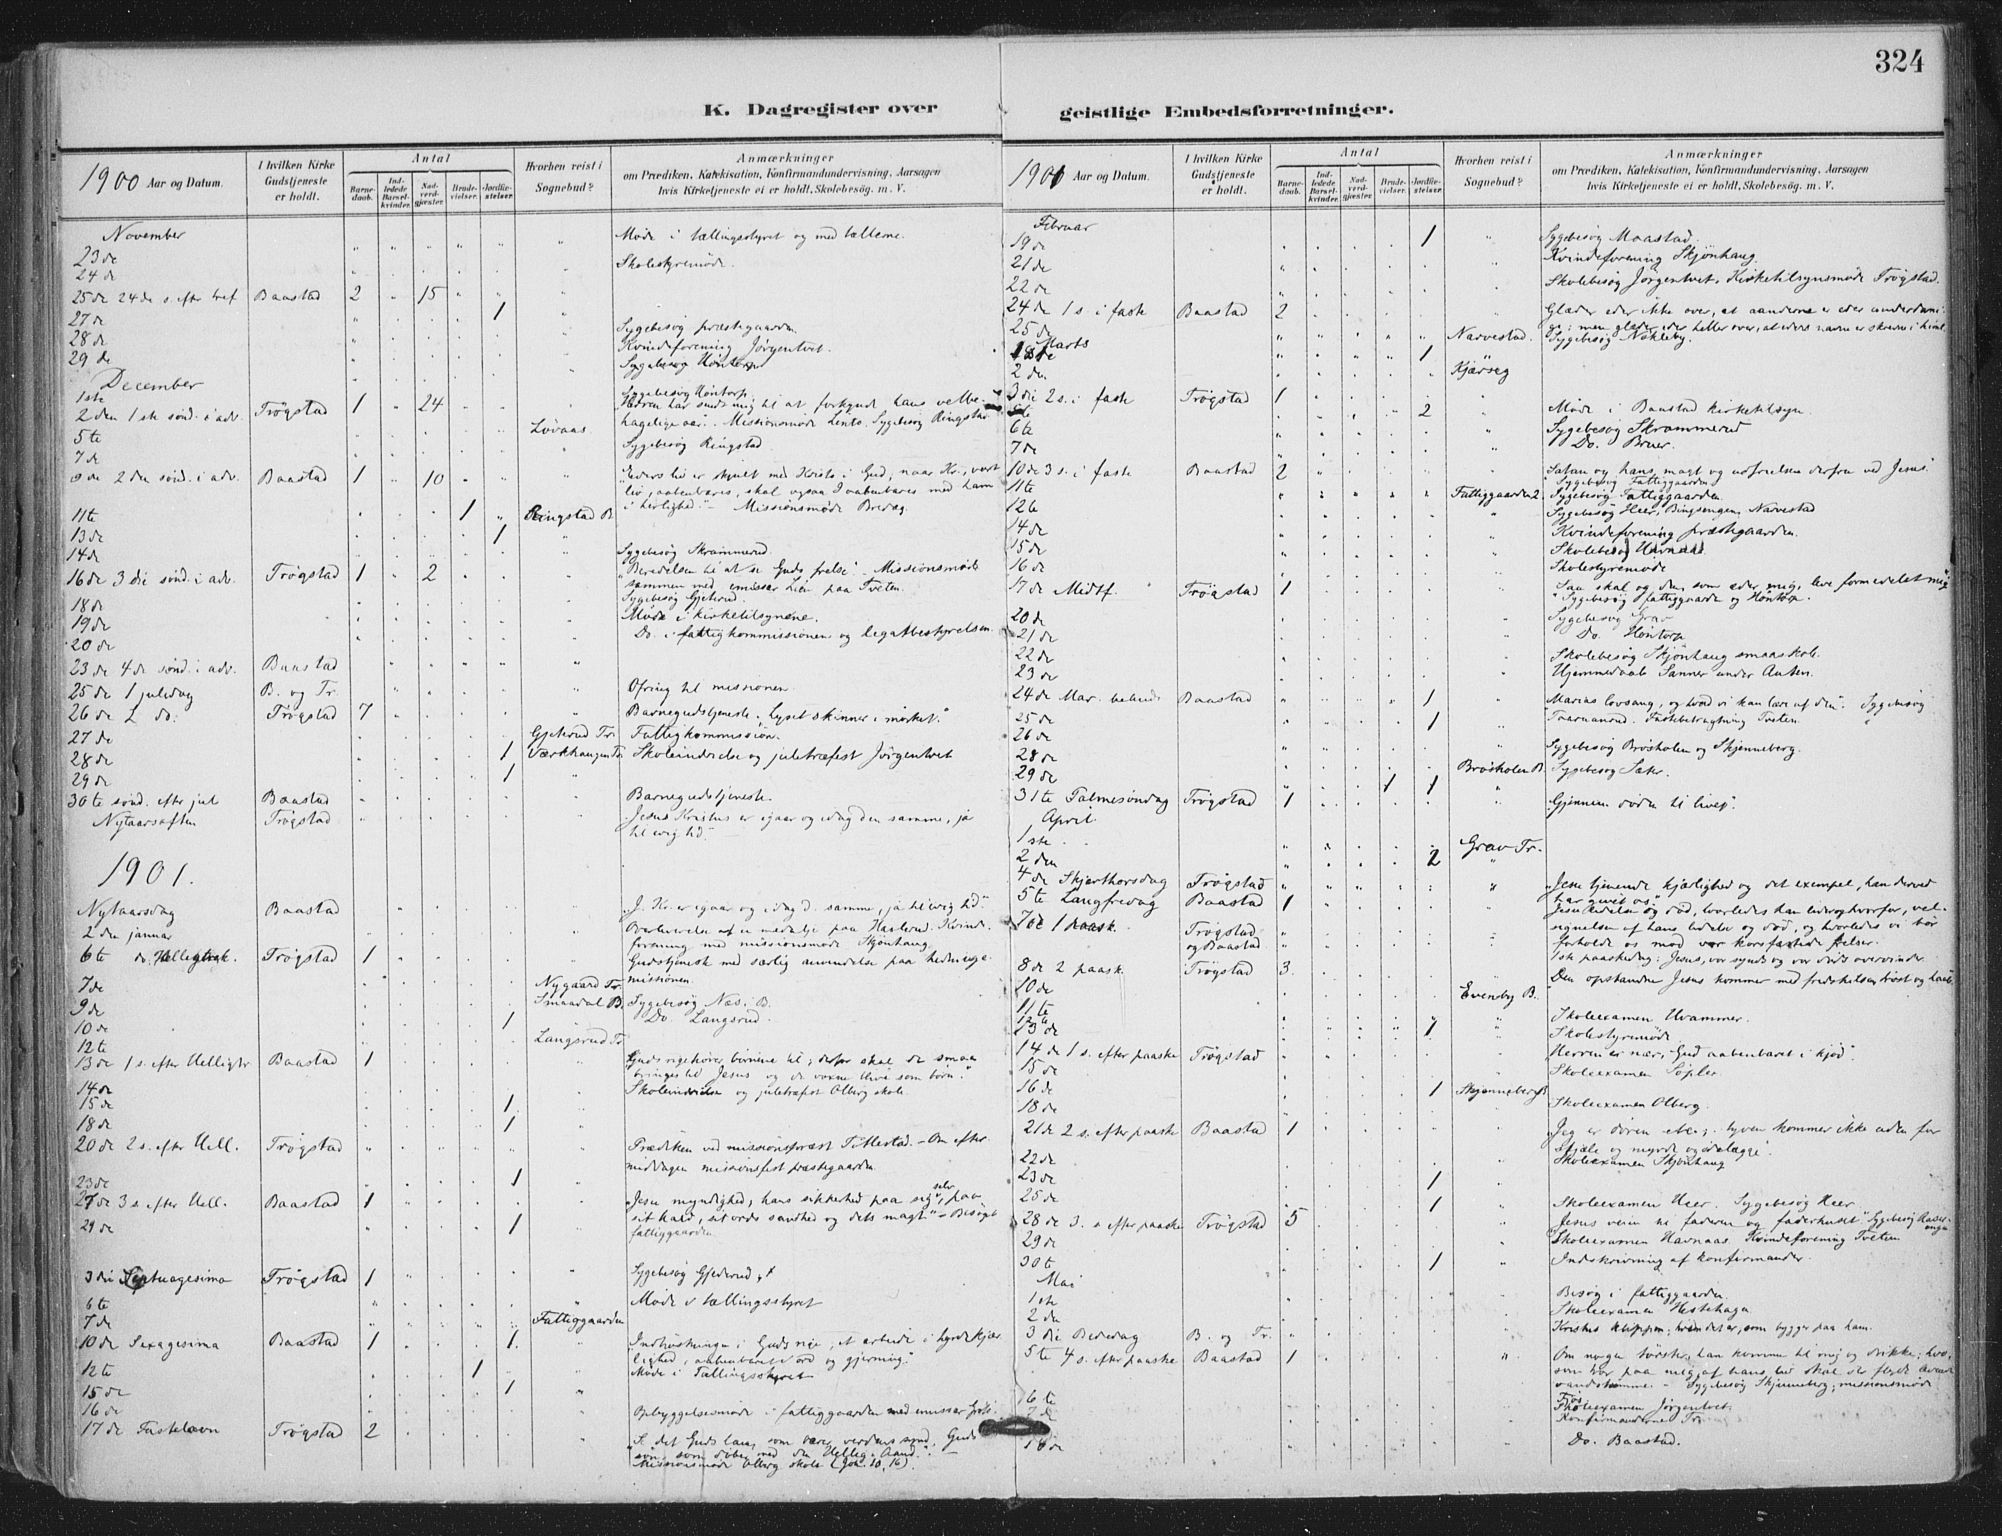 324
K. Dagregister over geistlige Embedsforretninger.
1900 Aar og Datum.
I hvilken Kirke Gudstjeneste er holdt.
Antal
Barnedaab.
Indledede Barselkvinder.
Nadverdgjæster.
Brudevielser.
Jordfæstelser.
Hvorhen reist i Sognebud?
Anmærkninger
om Prædiken, Katekisation, Konfirmandundervisning, Aarsagen
hvis Kirketjeneste ei er holdt, Skolebesøg. m. V.
November
23 de Møde i tællingsstyret og med tællerne.
24 de Skolestyremøde.
25 de 24 de s. efter tref Baastad 2 15
27 de 1
28 de Sygebesøg præstegaarden
29 de Kvindeforening Jørgentvet.
Sygebesøg Høntorp
December
1ste Sygebesøg Høntorp
2 den 1 ste sønd. i adv. Trøgstad 1 24 Herren har sendt mig til at forkynde hans velbe-
hagelige aar. Missionsmøde Sygebesøg Ringstad
5 te Lovaas
7 de Sygebesøg Ringstad
9 de 2 den sønd. i adv. Baastad 1 10 Eders liv er skjult med Kristo i Gud; naar Kr., vort
liv, aabenbares, skal ogsaa I aabenbares med ham
i herlighed. Missionsmøde Bredag.
11 te 1 Ringstad B.
13 de 1
14 de Sygebesøg Skrammerud.
16 de 3 die sønd. i adv. Trøgstad 1 2 Beredelsen til at se Guds frelse. Missionsmøde
sammen med emissær Lien paa Tveten.
18 de Sygebesøg Gjeterud.
19 de Møde i kirketilsynene.
20 de Do. i fattigkommissionen og legatbestyrelsen.
23 de 4 de sønd. i adv. Baastad
25 de 1 juledag B. og Tr. Ofring til missionen.
26 de 2 do. Trøgstad 7 Barnegudstjeneste. Lyset skinner i mørket.
27 de Gjeterud Tr. Fattigkommission.
28 de 1 Skoleindvielse og juletræfest Jørgentvet
29 de 1
30 te sønd. efter jul Baastad Barnegudstjeneste.
Nytaarsaften Trøgstad Jesus Kristus er igaar og idag den samme, ja
til evig tid.
1901.
Nytaarsdag Baastad J. Kr. er igaar og idag d. samme, ja til evig tid.
2 den januar Overleverelse af en medalje paa Haslerud. Kvinde-
forening med missionsmøde Skjønhaug.
6 te Trøgstad 1 Gudstjeneste med særlig anvendelse paa hedninge-
missionen.
7 de Nygaard Tr.
9 de Smaadal B. Sygebesøg Næs. B.
10 de 1 Do. Langsrud.
12 te Langsrud Tr.
13 de 1 s. efter Helligtr Baastad 1 Guds rige hører børnene til; derfor skal de smaa
bringes til Jesus og de voxne blive som børn.
14 de Skoleindvielse og juletræfest Olberg skole.
15 de 1
18 de 1
20 de 2 s. efter Hell. Trøgstad Prædiken ved missionspræst Tillerstad. Om efter-
middagen missionsfest præstegaarden.
23 de 1
27 de 3 s. efter Hell. Baastad 1 Jesu myndighed, hans sikkerhed paa sig selv, paa
sit kald, sit ords sandhed og dets magt. Besøgt
29 de 1 fattiggaarden
3 die Septuagesima Trøgstad 1 Sygebesøg Gjederud
6 te Møde i tællingsstyret
7 de Fattiggaarden
10 de Sexagesima Baastad 1 1 Indhøstningen i Guds rige, et arbeide i hyrdekjær-
lighed, aabenbaret i ord og gjerning.
12 te 1 Møde i Tællingsstyret
15 de 1
16 de Opbyggelsesmøde i fattiggaarden med emissær
17 de Fastelavn Trøgstad 2 Se det Guds lam, som bærer verdens synd. Guds
søn, som døber med den Hellig-Aand.
Missionsmøde Olberg skole (Joh. 10, 16).
1901 Aar og Datum.
I hvilken Kirke Gudstjeneste er holdt.
Antal
Barnedaab.
Indledede Barselkvinder.
Nadverdgjæster.
Brudevielser.
Jordfæstelser.
Hvorhen reist i Sognebud?
Anmærkninger
om Prædiken, Katekisation, Konfirmandundervisning, Aarsagen
hvis Kirketjeneste ei er holdt, Skolebesøg. m. V.
Februar
19 de 1 Sygebesøg Moastad.
21 de Kvindeforening Skjønhaug
22 de Skolebesøg Jørgentvet. Kirketilsynsmøde Trøgstad.
24 de 1 s. i faste Baastad 2 Glæder eder ikke over, at aanderne er eder underdani-
ge; men glæder eder heller over, at eders navne er skrevne i himl.
25 de Narvestad. Sygebesøg Nøkleby.
Marts
1ste 1
2 den Kjærseg
3 die 2 s. i faste Trøgstad 1
5 te 2 Møde i Baastad kirketilsyn
6 te Sygebesøg Skrammerud
7 de Do. Bruer.
10 de 3 s. i faste Baastad 2 Satan og hans magt og udfrielsen derfra ved Jesus.
Sygebesøg Fattiggaarden
11 te Fattiggaarden 2. Sygebesøg Fattiggaarden
12 te Sygebesøg Heer, Bingsengen, Narvestad
14 de Kvindeforening præstegaarden.
15 de Skolebesøg Havnaas.
16 de Skolestyremøde
17 de Midtf. Trøgstad 1 Saa skal og den, som æder mig, leve formedelst mig
Sygebesøg fattiggaarde og Høntorp.
20 de Sygebesøg Grav
21 de Do. Høntorp
22 de Skolebesøg Skjønhaug smaaskole.
23 de Hjemmedaab Sanner under Auten.
24 de Mar. bebud. Baastad 1 Marias lovsang, og hvad vi kan lære af den. Sygebesøg
25 de 1 Fastebetragtning Tveten.
26 de
28 de Sygebesøg Brøsholen og Skjønneberg.
29 de Brøsholen B. Sygebesøg Sæter.
1 1
31 te Palmesøndag Trøgstad 1 Gjennem døden til livet.
April
1 ste Grav Tr.
2 den 2
4 de Skjærthorsdag Trøgstad Jesu tjenende kjærlighed og det exempel, han derved
har givet os
5 te Langfredag Baastad 1 Jesu lidelse og død, hvorledes han led og hvorfor, vel-
signelsen af hans lidelse og død, og hvorledes vi bør
forholde os mod vor korsfæstede frelser.
7 de 1 paask. Trøgstad og Baastad 1ste paaskedag: Jesus, vor synds og vor døds overvinder
8 de 2 paask. Trøgstad 3. Den opstandne Jesus kommer med fredshilsen, trøst og
10 de Evenby B.
11 te Skoleexamen Hvammer.
12 te Skolestyremøde
13 de 1
14 de 1 s. efter paaske Trøgstad Herren er nær; Gud aabenbaret i kjød.
15 de Skoleexamen Søpler
16 de 1 Skjønneberg B.
18 de Skoleexamen Olberg.
21 de 2 s. efter paaske Baastad 1 Jeg er døren etc.; tyven kommer ikke uden for
at stjæle og myrde og ødelægge.
22 de Skoleexamen Skjønhaug
23 de 1
25 de 1 Skoleexamen Heer. Sygebesøg Heer.
28 de 3. s. efter paaske Trøgstad 5 Jesus veien til faderen og faderhuset. Sygebesøg
29 de Skoleexamen Havnaas. Kvindeforening Tveten
30 te 1 Indskrivning af konfirmander.
Mai
1 ste Besøg i fattiggaarden.
2 den Skoleexamen Hestehagen
3 die Bededag B. og Tr. Kristus klippen; hvem det er, som bygger paa ham.
5 te 4 s. efter paaske Baastad 1 Om nogen tørster, han komme til mig og drikke; hvo,
som tror paa mig, af hans liv skal der flyde levende
vandstrømme. Sygebesøg Skjønneberg, missionsmøde
6 te Skoleexamen Jørgentvet
7 de Konfirmanderne Tr.
Do. Baastad.